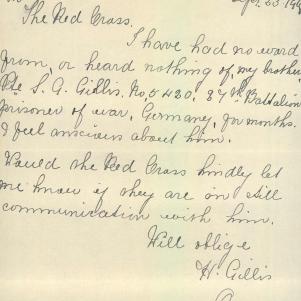 Sept. 23. 19
The Red Cross.
I have had no word
from, or heard nothing of, my brother
Pte S. A. Gillis. No 5420. 37th Battalion
prisoner of war, Germany, for months.
I feel anxious about him.
Would the Red Cross kindly let
me know if they are in still
communication with him.
Will oblige
H. Gillis